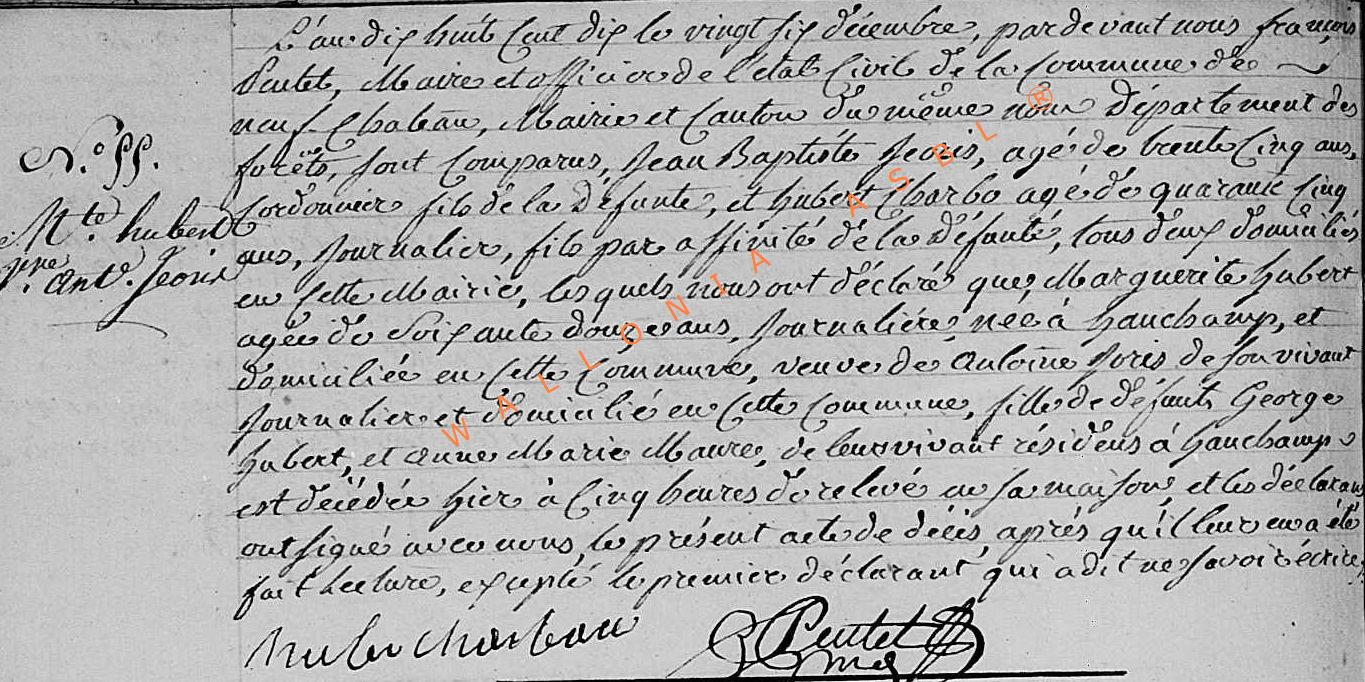 L'an dix huit Cent dix le vingt six décembre, pardevant nous françois
Pentet, Maire et officier de l'état Civil de la Commune de
neuf-Chateau, Mairie et Canton du même nom Département des
forêts, sont Comparus, Jean Baptiste Jeoris, agé de trente Cinq ans,
Cordonnier fils de la Défunte, et hubert Charbo agé de quarante Cinq
ans, Journalier, fils par affinité de la Défunte, tous deux domiciliés
en Cette Mairie, lesquels nous ont déclaré que, Marguerite hubert
agée de Soixante douze ans, Journalière, née à hauchamp, et
domiciliée en Cette Commune, veuve de Antoine Joris de son vivant
Journalier et domicilié en Cette Commune, fille de défunts George
hubert, et Anne Marie Maure, de leur vivant résidens à hauchamp
est décédée hier à Cinq heures de relevé en sa maison, et les déclarans
ont signé avec nous, le présent acte de décès, après qu'il leur en a été
fait Lecture, excepté le premier déclarant qui a dit ne savoir écrire,
N.o 55.
Mte. hubert
Ant. Jeoris
hubert charbau
Pentet
WALLONIA ASBL ®